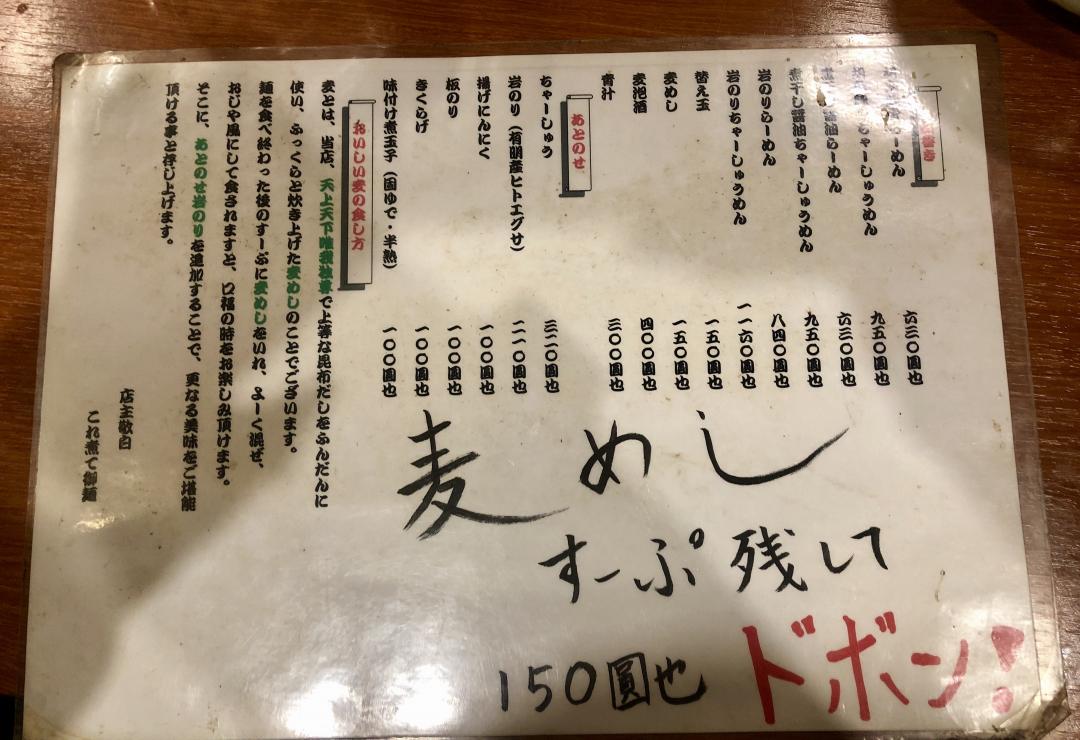 らーめん
ちゃーしゅうめん
醤油らーめん
煮干し醤油ちゃーしゅうめん
岩のりらーめん
岩のりちゃーしゅうめん
替え玉
麦めし
麦泡酒
青汁
六三〇圓也
九五〇圓也
六三〇圓也
九五〇圓也
八四〇圓也
一一六〇圓也
一五〇圓也
一五〇圓也
四〇〇圓也
三〇〇圓也
あとのせ
ちゃーしゅう
岩のり（有明産ヒトエグサ）
揚げにんにく
板のり
きくらげ
味付け煮玉子（固ゆで・半熟）
三二〇圓也
二一〇圓也
一〇〇圓也
一〇〇圓也
一〇〇圓也
一〇〇圓也
おいしい麦の食し方
麦とは、当店、天上天下唯我独尊で上等な昆布だしをふんだんに
使い、ふっくらと炊き上げた麦めしのことでございます。
麺を食べ終わった後のすーぷに麦めしをいれ、よーく混ぜ、
おじや風にして食されますと、口福の時をお楽しみ頂けます。
そこに、あとのせ岩のりを追加することで、更なる美味をご堪能
頂ける事と存じ上げます。
店主敬白
これ煮て御麺
麦めし
すーぷ残して
ドボン!
150圓也